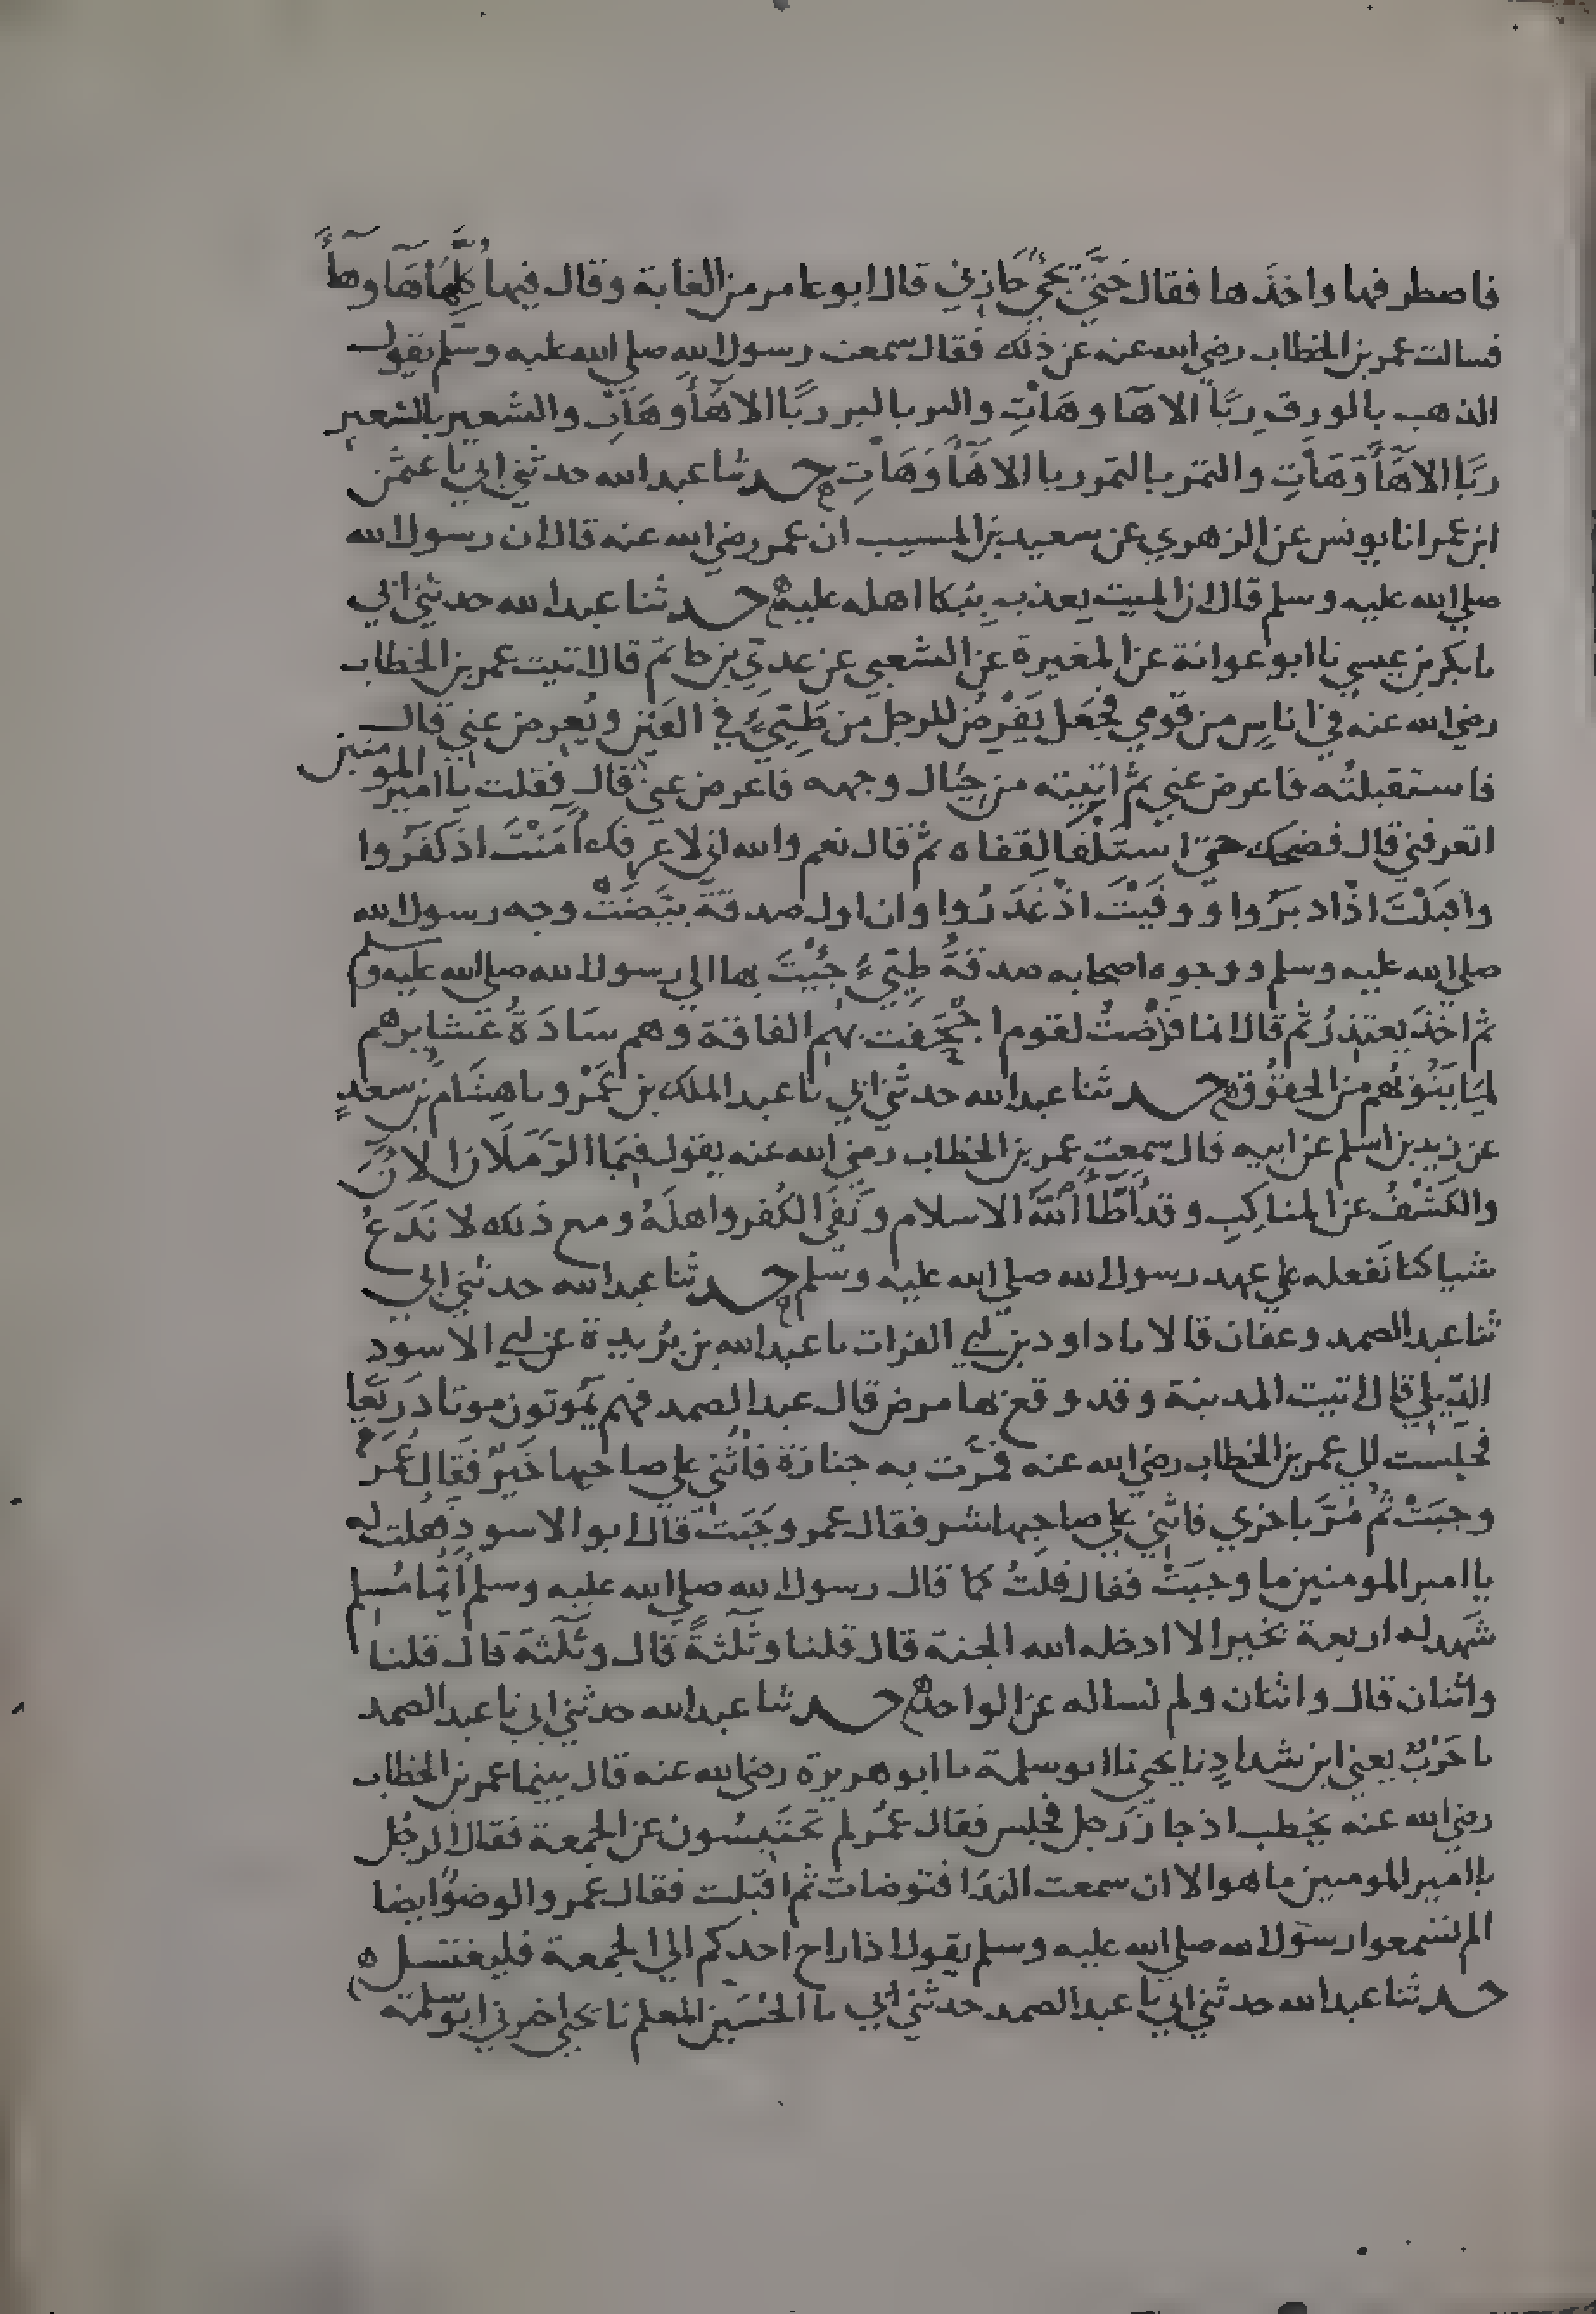 فاصطرفها واخذها فقال حَتَّى يجيَ خازني قال ابو عامر من الغابة وقال فيها كُلِّها هَآ وهآءَ
فسالت عمر بن الخطاب رضي الله عنه عن ذلك فقال سمعت رسول الله صلي الله عليه وسلم يقول
الذهب بالورق رِبًا الا هآ وهَاتِ والبر بالبر ربًا الا هَآءَ وهَاتِ والشعير بالشعير
ربًا الا هَآءَ وَهَاتِ والتمر بالتمر ربا الا هَآءَ وَهَاتِ حدثنا عبد الله حدثني ابي نا عثمن
ابن عمر انا يونس عن الزهري عن سعيد بن المسيب ان عمر رضي الله عنه قال ان رسول الله
صلي الله عليه وسلم قال ان الميت يعذب ببكا اهله عليه حدثنا عبد الله حدثني ابي
نا بكر بن عيسي نا ابو عوانة عن المغيرة عن الشعبي عن عدي بن حاتم قال اتيت عمر بن الخطاب
رضي الله عنه في اناسٍ من قومي فجَعل يَفْرضُ للرجل من طَيّئٍ في الفين ويُعرض عني قال
فاستقبلتُه فاعرض عني ثم اتيته من حِيال وجهه فاعرض عني قال فقلت يا امير المومنين
اتعرفني قال فضحك حتي استَلْقَا لِقفاه ثم قال نعم والله اني لاعرفك اٰمَنْتَ اذ كفَرُوا
واقبَلْتَ اذ ادبَرُوا ووفَيْتَ اذ غَدَرُوا وان اول صدقة بيَّضَتْ وجه رسول الله
صلي الله عليه وسلم ووجوه اصحابه صدقةُ طيّئٍ جِئْتَ بها الي رسول الله صلي الله عليه وسلم
ثم اخذ يعتذرُ ثم قال انما فرضتُ لقوم اجْحَفت بهم الفاقة وهم سَادَةُ عَشايرهم
لِمَا يَنُوبُهم من الحقُوق حدثنا عبد الله حدثني ابي نا عبد الملك بن عَمْرو نا هِشَام بن سعدٍ
عن زيد بن اسلم عن ابيه قال سمعت عمر بن الخطاب رضي الله عنه يقول فِيمَا الرَّمَلَان الان
والكَشْفُ عن المناكِبِ وقد اَطَّأ اللهُ الاسلام ونَفَى الكُفر واهلَهُ ومع ذلك لا نَدَعُ
شيا كنا نَفعله علي عهد رسول الله صلي الله عليه وسلم حدثنا عبد الله حدثني ابي
ثنا عبد الصمد وعفان قالا نا داود بن ابي الفرات نا عبد الله بن بُريدة عن ابي الاسود
الدّيلي قال اتيت المدينة وقد وقع بها مرض قال عبد الصمد فهم يَموتون موتا ذريعًا
فجلست الي عمر بن الخطاب رضي الله عنه فمرَّت به جنازة فاثني علي صاحبها خيرٌ فقال عُمَرُ
وجبَتْ ثم مُرَّ باخري فاثني علي صاحبها شر فقال عمر وجَبَت قال ابو الاسود فقلت له
يا امير المومنين ما وجبَتْ فقال قلتُ كما قال رسول الله صلي الله عليه وسلم ايُّما مُسلم
شهد له اربعة بخير الا ادخله الله الجنة قال قلنا وثَلٰثةً قال وثَلٰثة قال قلنا
واثنان قال واثنان ولم نساله عن الواحد حدثنا عبد الله حدثني ابي نا عبد الصمد
نا حَرْبٌ يعني ابن شدادٍ نا يحيي نا ابو سلمة نا ابو هريرة رضي الله عنه قال بينما عمر بن الخطاب
رضي الله عنه يخطب اذ جا رَجل فجلس فقال عمر لم تَحتَبِسُون عن الجمعة فقال الرجُل
يا امير المومنين ما هو الا ان سمعت الندَا فتوضات ثم اقبلت فقال عمر والوضوُ ايضا
الم تسمعوا رسول الله صلي الله عليه وسلم يقول اذا راح احدكم الي الجمعة فليغتسل
حدثنا عبد الله حدثني ابي نا عبد الصمد حدثني ابي نا الحُسَين المعلم نا يحيي اخبرني ابو سلمة